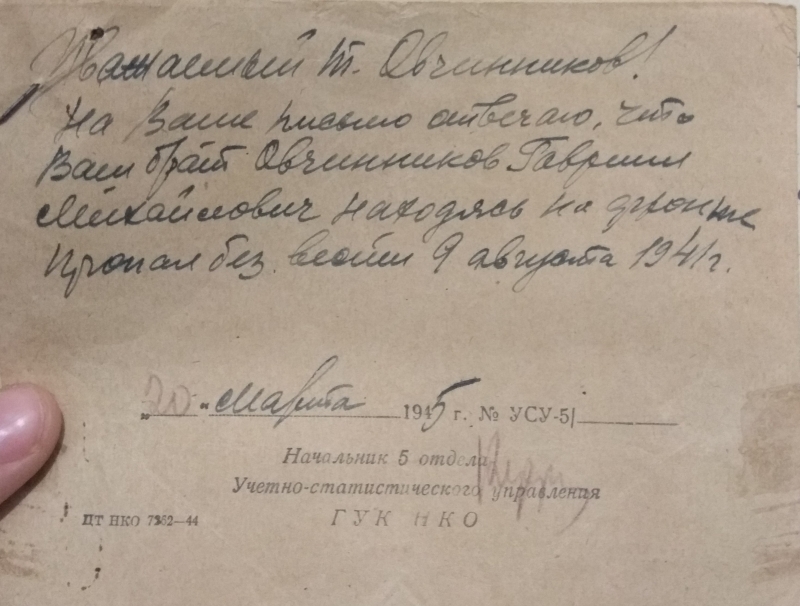 Уважаемый т. Овчинников!
На Ваше письмо отвечаю, что
Ваш брат Овчинников Гавриил
Михайлович находясь на фронте
пропал без вести 9 августа 1941 г.
„20“ марта 1945 г. № УСУ-5/
Начальник 5 отдела
Учетно-статистического управления
ГУК НКО
ЦТ НКО 7362—44